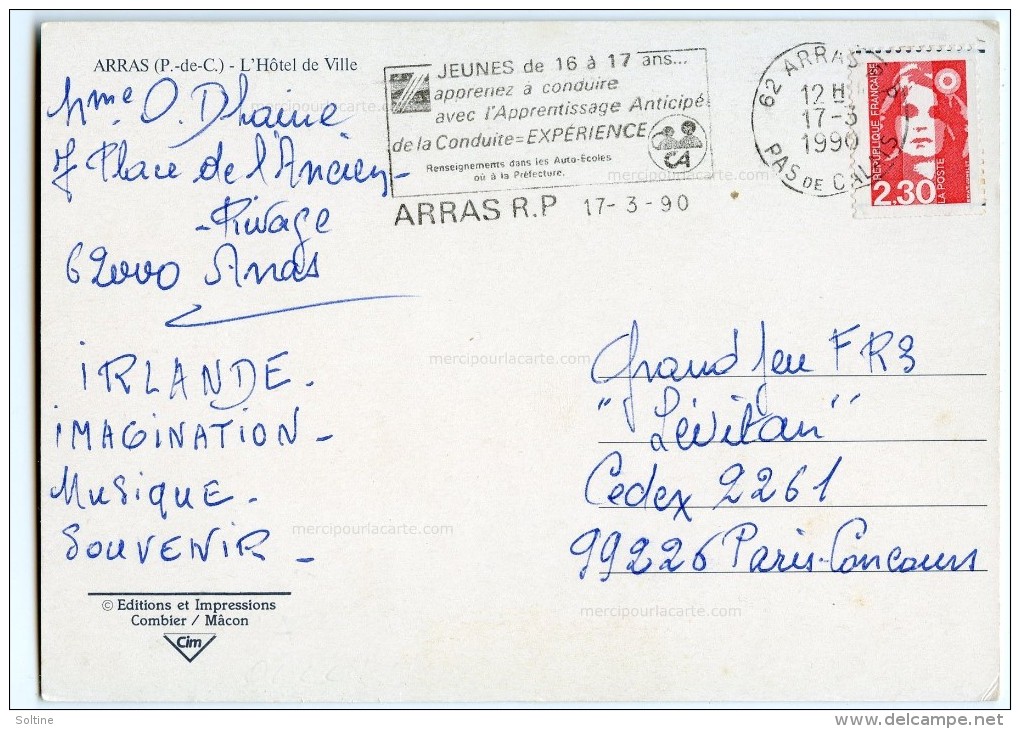 ARRAS (P.-de-C.) - L'Hôtel de Ville
Mme O. Dhaine
7 Place de l'Ancien-
-Rivage
62000 Arras
IRLANDE.
IMAGINATION -
MUSIQUE.
SOUVENIR -
© Editions et Impressions
Combier / Mâcon
Cim
JEUNES de 16 à 17 ans...
apprenez à conduire
avec l'Apprentissage Anticipé
de la Conduite=EXPÉRIENCE
Renseignements dans les Auto-Ecoles
où à la Préfecture.
CA
ARRAS R.P 17-3-90
62 ARRAS
12 H
17-3
1990
PAS DE CALAIS
REPUBLIQUE FRANÇAISE
2.30
LA POSTE
Grand Jeu FR3
"Lévitan"
Cedex 2261
99226 Paris-Concours
mercipourlacarte.com
mercipourlacarte.com
mercipourlacarte.com
mercipourlacarte.com
mercipourlacarte.com
Soltine
www.delcampe.net